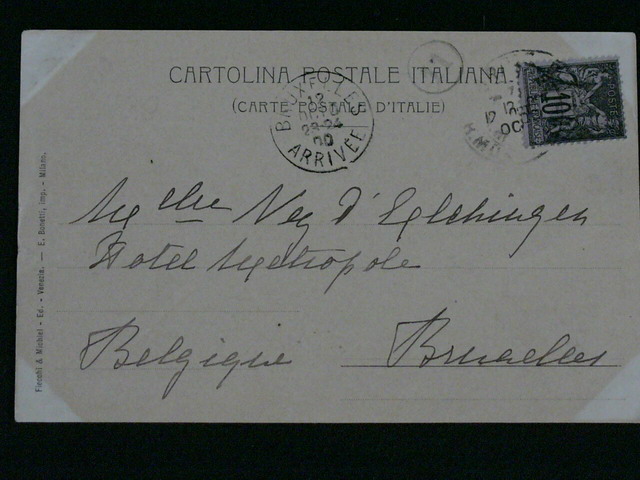 CARTOLINA POSTALE ITALIANA
(CARTE POSTALE D'ITALIE)
1
BRUXELLES
12
23-24
00
ARRIVÉE
10
POSTE
Mclle Ney d'Elchingen
Hotel Métropole
Belgique Bruxelles
Fiecchi & Michiel - Ed. - Venezia. — E. Bonetti, imp. - Milano.